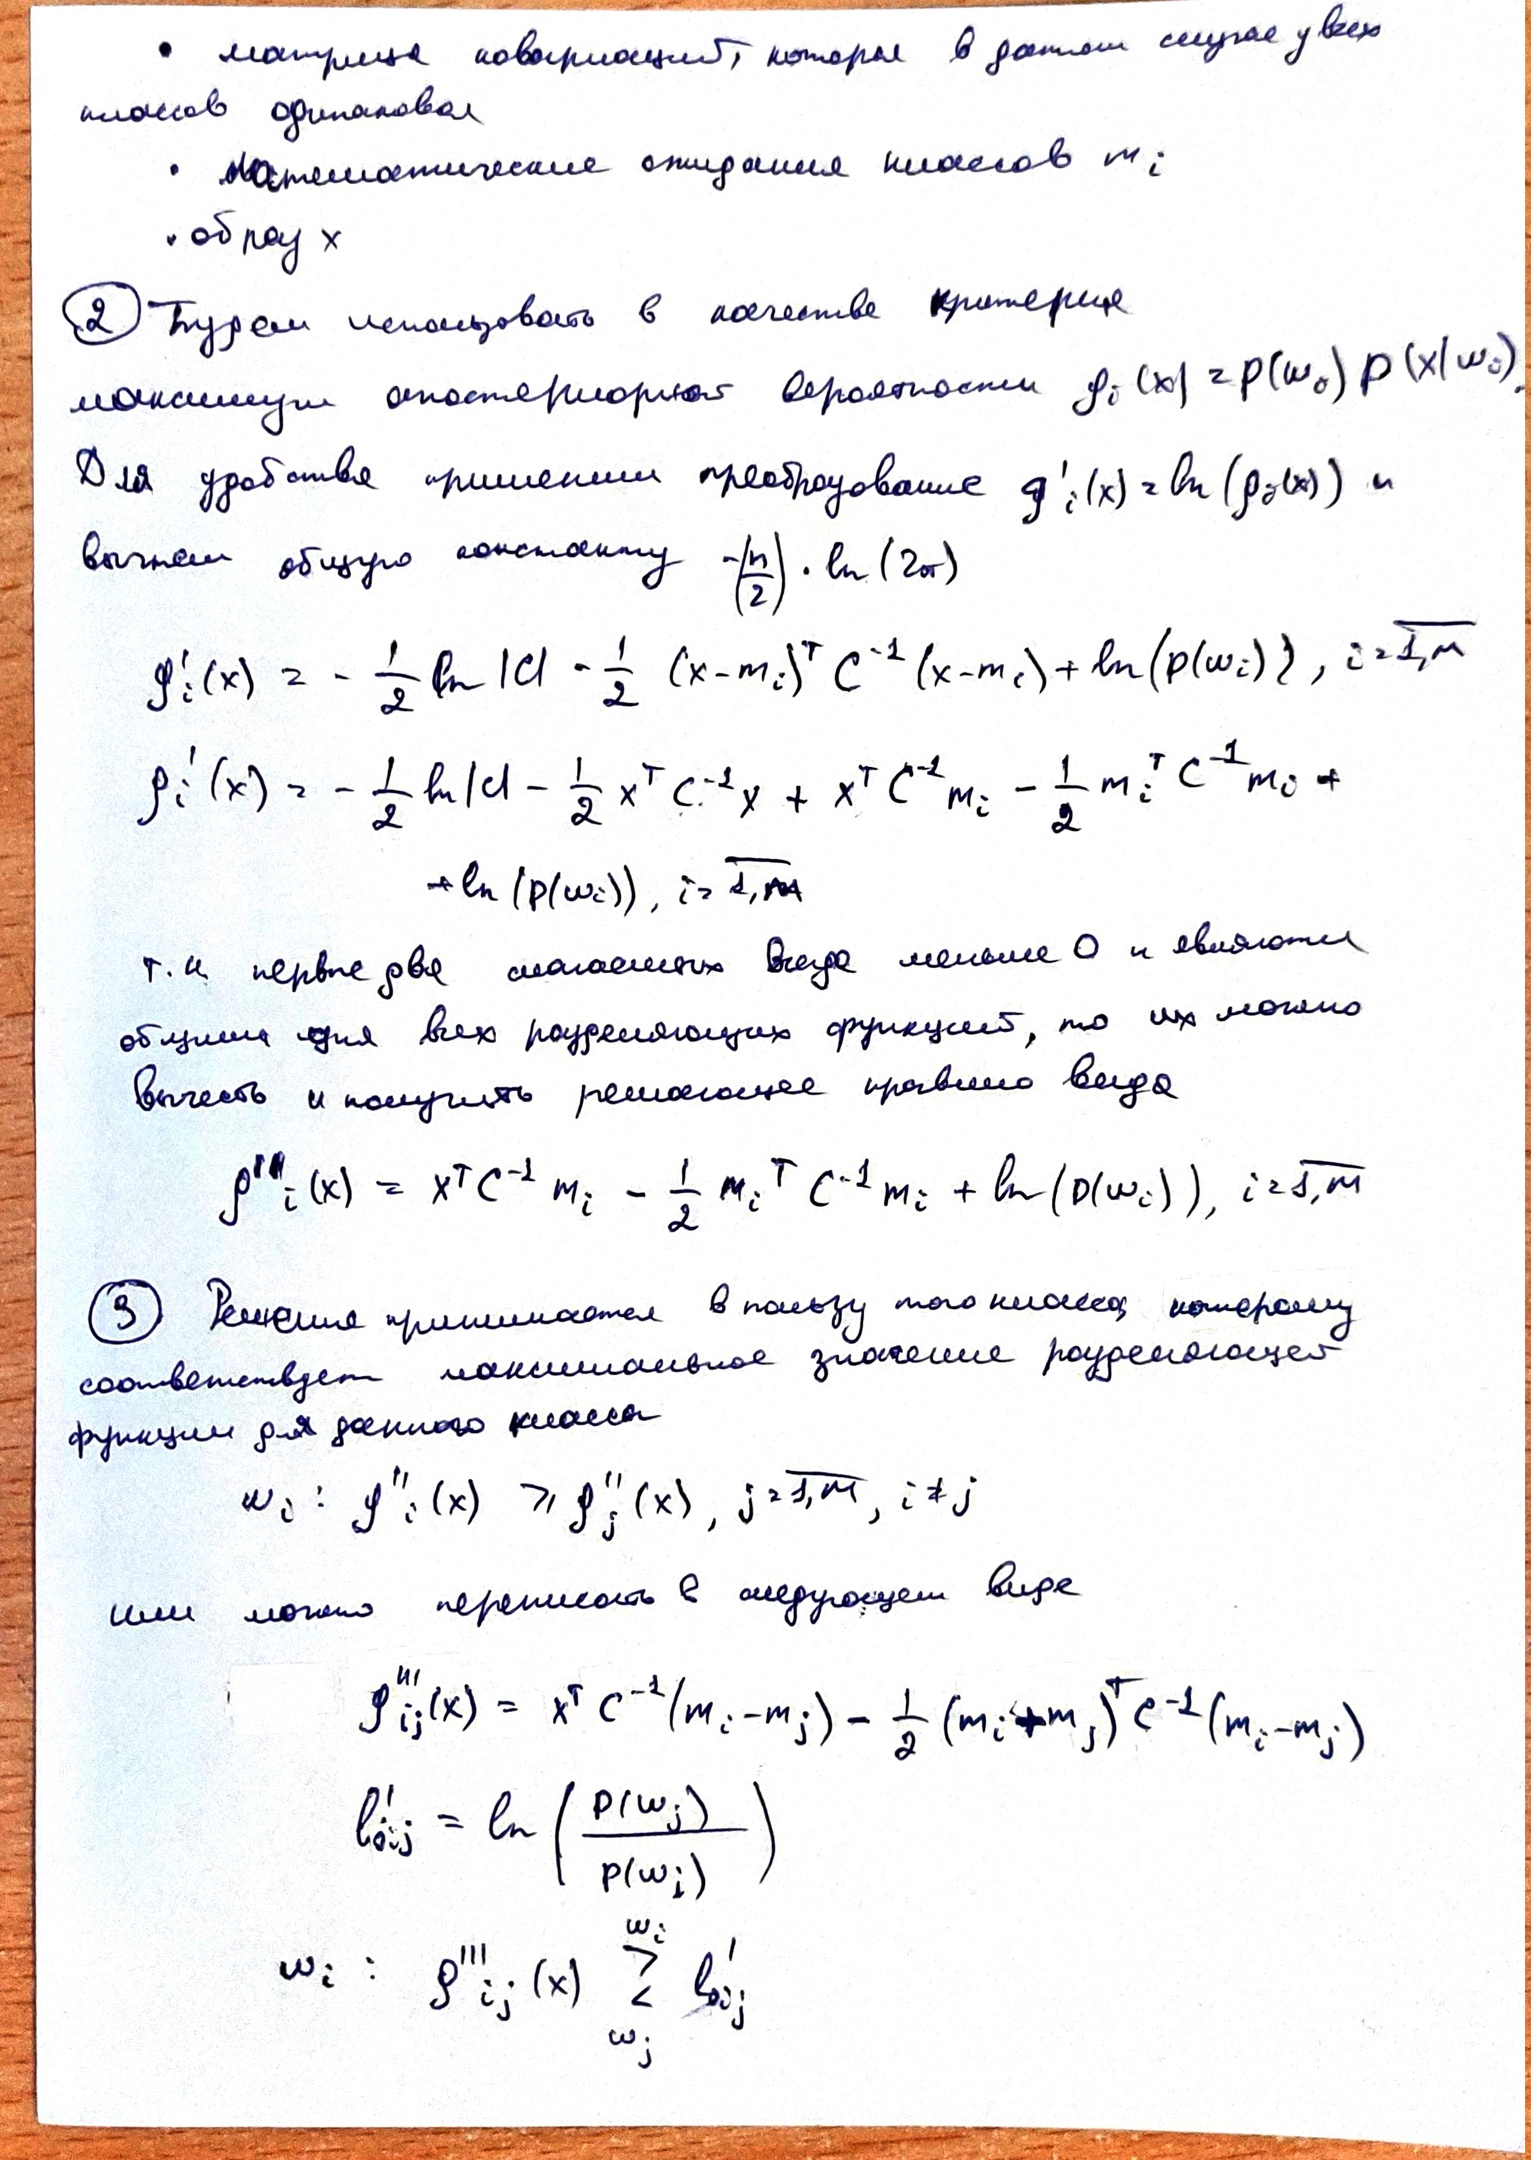 • матрица ковариаций, которая в данном случае у всех
классов одинаковая
• Математические ожидания классов mᵢ
• образ x
② Будем использовать в качестве критерия
максимум апостериорной вероятности gᵢ(x) = p(wᵢ) p(x|wᵢ).
Для удобства применим преобразование g'ᵢ(x) = ln(gᵢ(x)) и
вычтем общую константу -(n/2) · ln(2π)
g'ᵢ(x) = - 1/2 ln|C| - 1/2 (x-mᵢ)ᵀ C⁻¹ (x-mᵢ) + ln(p(wᵢ)), i = 1,M
g'ᵢ(x) = - 1/2 ln|C| - 1/2 xᵀ C⁻¹ x + xᵀ C⁻¹ mᵢ - 1/2 mᵢᵀ C⁻¹ mᵢ +
+ ln(p(wᵢ)), i = 1,M
т.к. первые два слагаемых всегда меньше 0 и являются
общими для всех разделяющих функций, то их можно
вычесть и получить решающее правило вида
g'''ᵢ(x) = xᵀ C⁻¹ mᵢ - 1/2 mᵢᵀ C⁻¹ mᵢ + ln(p(wᵢ)), i = 1,M
③ Решение принимается в пользу того класса, которому
соответствует максимальное значение разделяющей
функции для данного класса
wᵢ : g''ᵢ(x) ⩾ g''ⱼ(x), j = 1,M, i ≠ j
или можно переписать в следующем виде
g'''ᵢⱼ(x) = xᵀ C⁻¹ (mᵢ - mⱼ) - 1/2 (mᵢ + mⱼ)ᵀ C⁻¹ (mᵢ - mⱼ)
l'₀ᵢⱼ = ln ( p(wⱼ) / p(wᵢ) )
wᵢ
wᵢ : g'''ᵢⱼ(x) >< l'₀ᵢⱼ
wⱼ